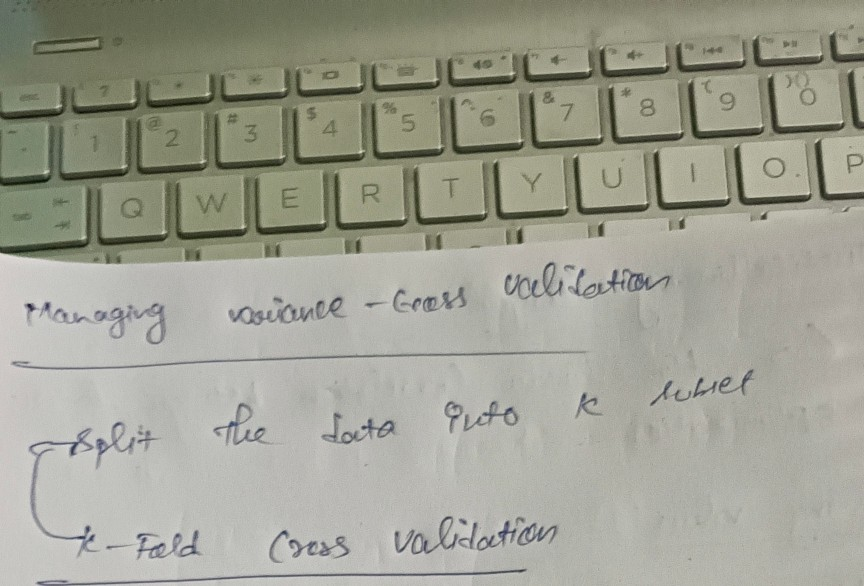 esc ?
1 @ 2 # 3 $ 4 % 5 ^ 6 & 7 * 8 ( 9 ) 0
tab Q W E R T Y U I O P
Managing variance - Cross validation
Split the data into k subset
k-Fold Cross validation